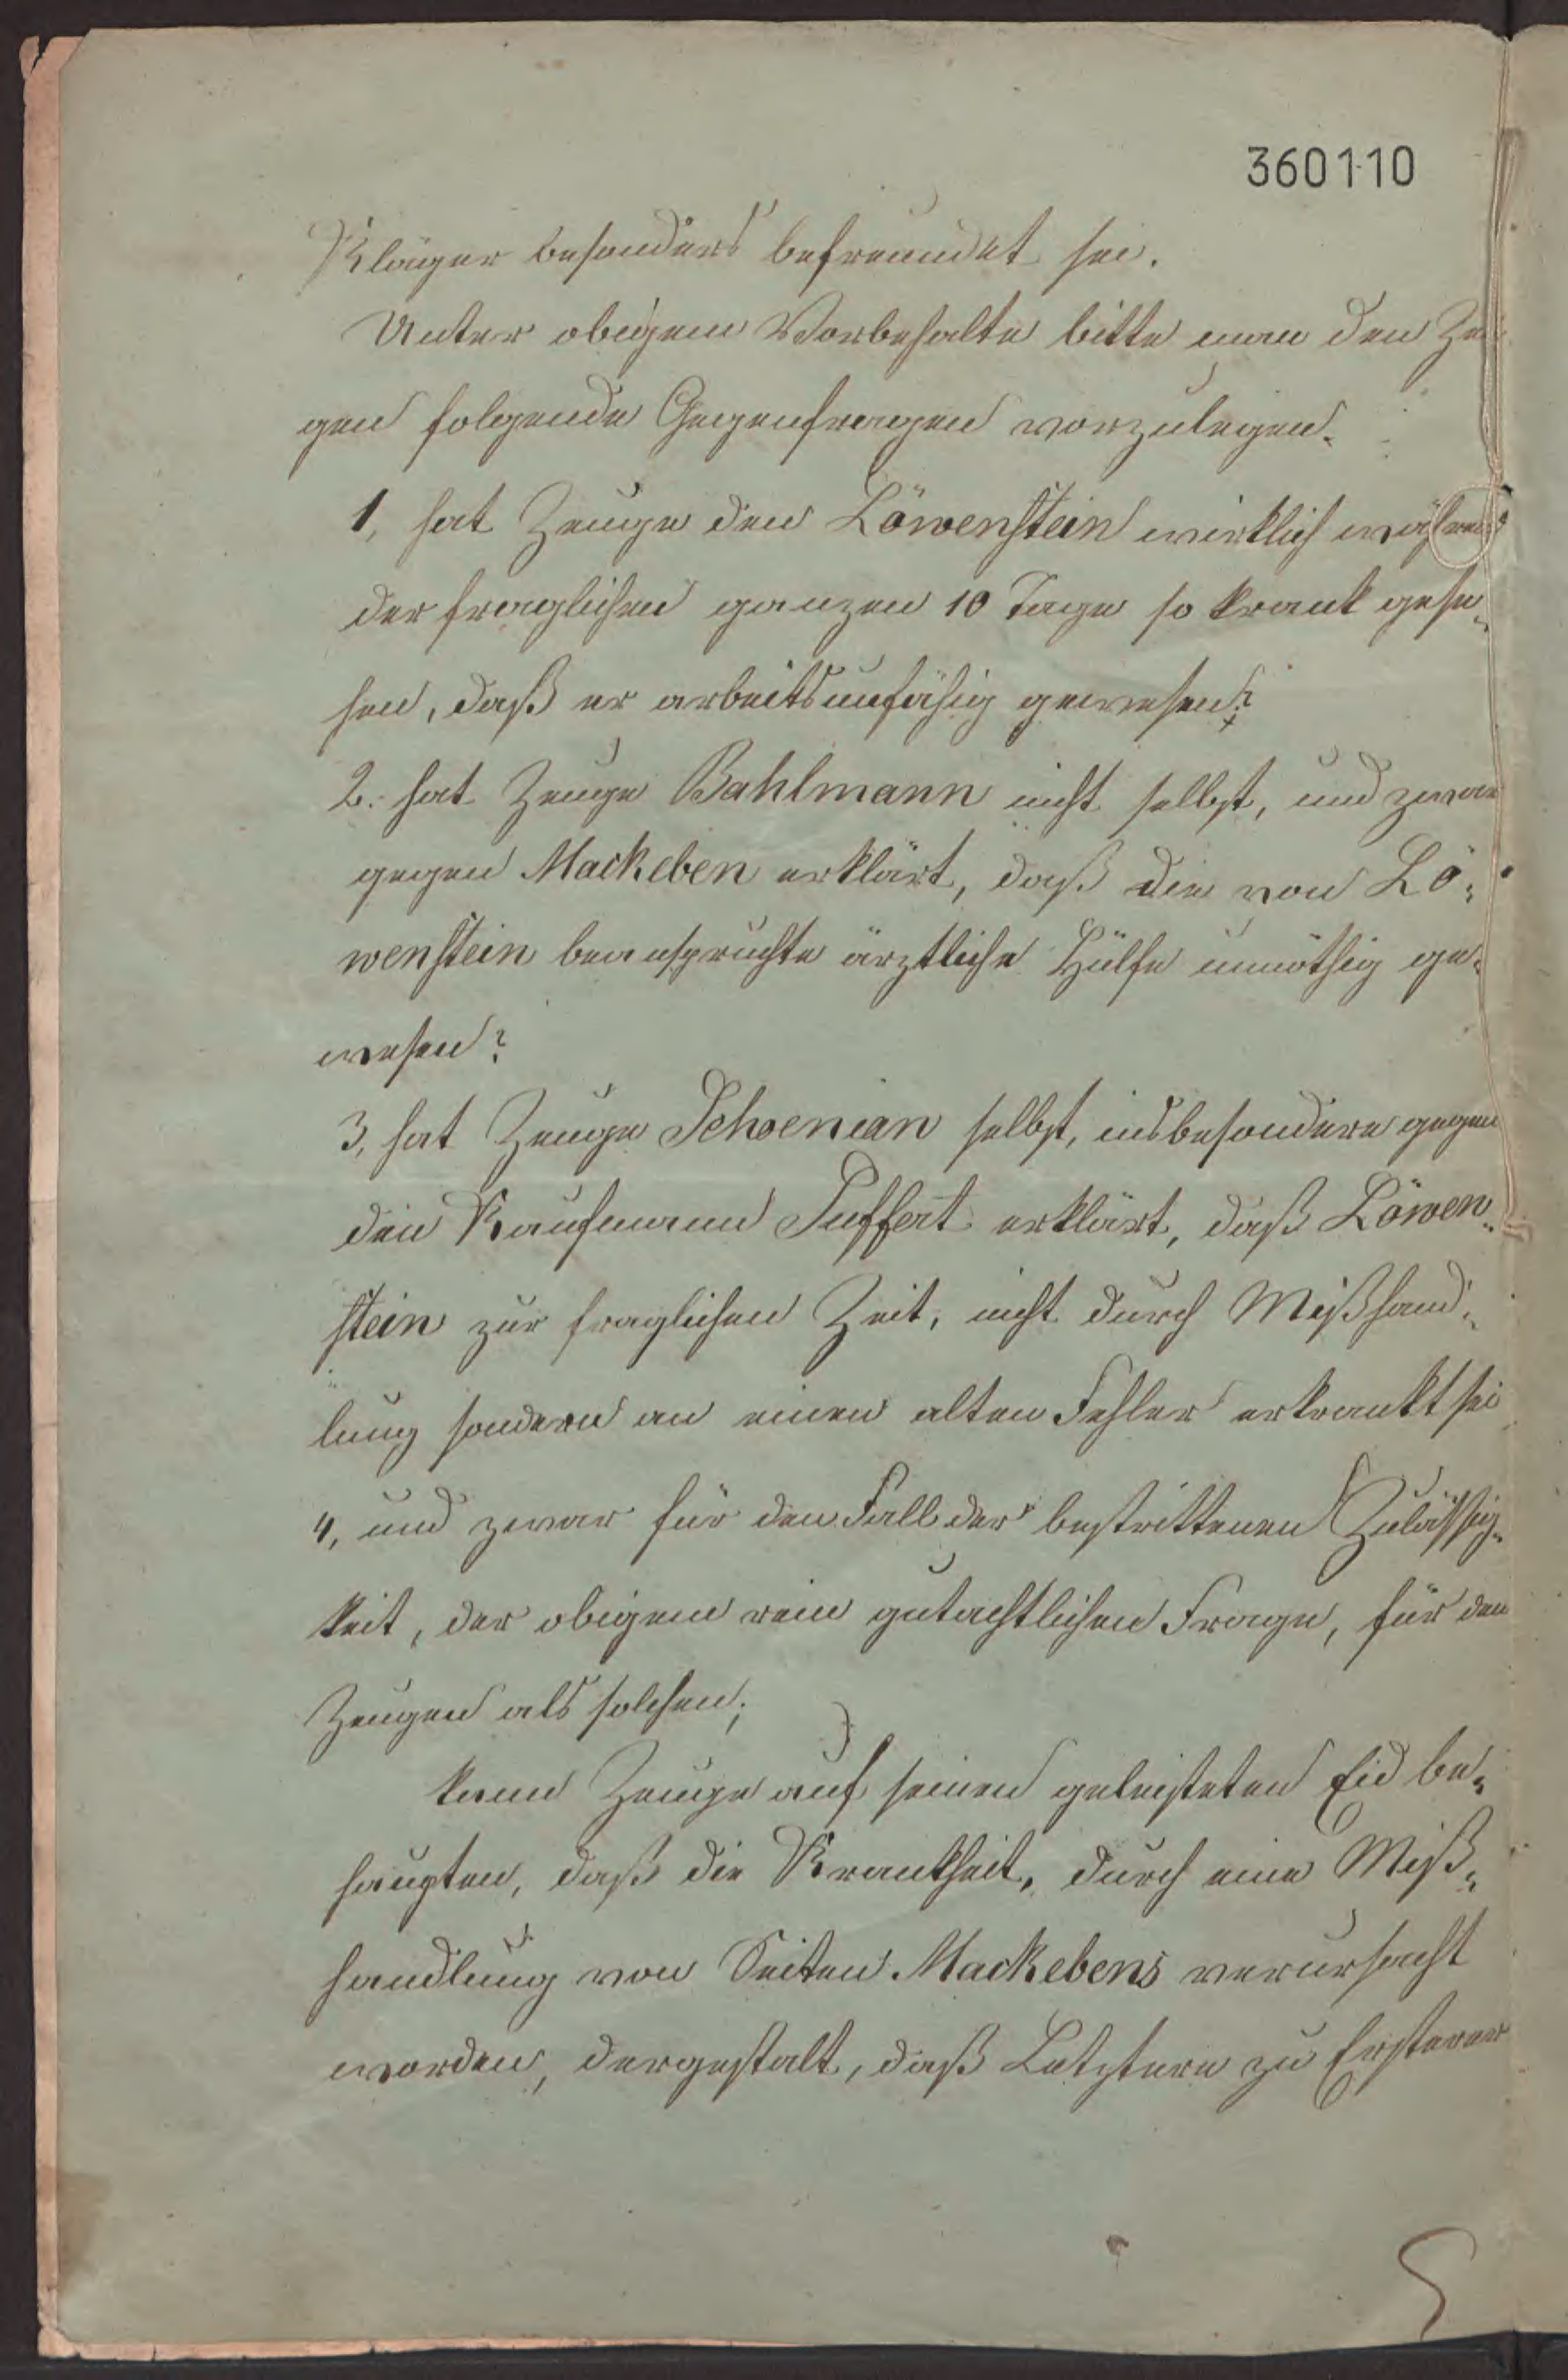 360110
Kläger besonders befreundet sei.
Unter obigem Vorbehalte bitte man den Zeu
gen folgende Gegenfragen vorzulegen.
1, hat Zeuge den Löwenstein wirklich während
der fraglichen ganzen 10 Tage so krank gese„
hen, daß er arbeitsunfähig gewesen?
2. hat Zeuge Bahlmann nicht selbst, und zwar
gegen Mackeben erklärt, daß die von Lö„
wenstein beanspruchte ärztliche Hülfe unnöthig ge„
wesen?
3, hat Zeuge Schoenian selbst, insbesondere gegen
den Kaufmann Puffert erklärt, daß Löwen„
stein zur fraglichen Zeit, nicht durch Mißhand„
lung sondern an einen alten Fehler erkrankt sei
4, und zwar für den Fall der bestrittenen Zulässig„
keit, der obigen rein gutachtlichen Frage, für den
Zeugen als solchen;
kann Zeuge auf seinen geleisteten Eid be„
haupten, daß die Krankheit, durch eine Miß„
handlung von Seiten Mackebens verursacht
worden, dergestalt, daß Letztere zu Ersterer